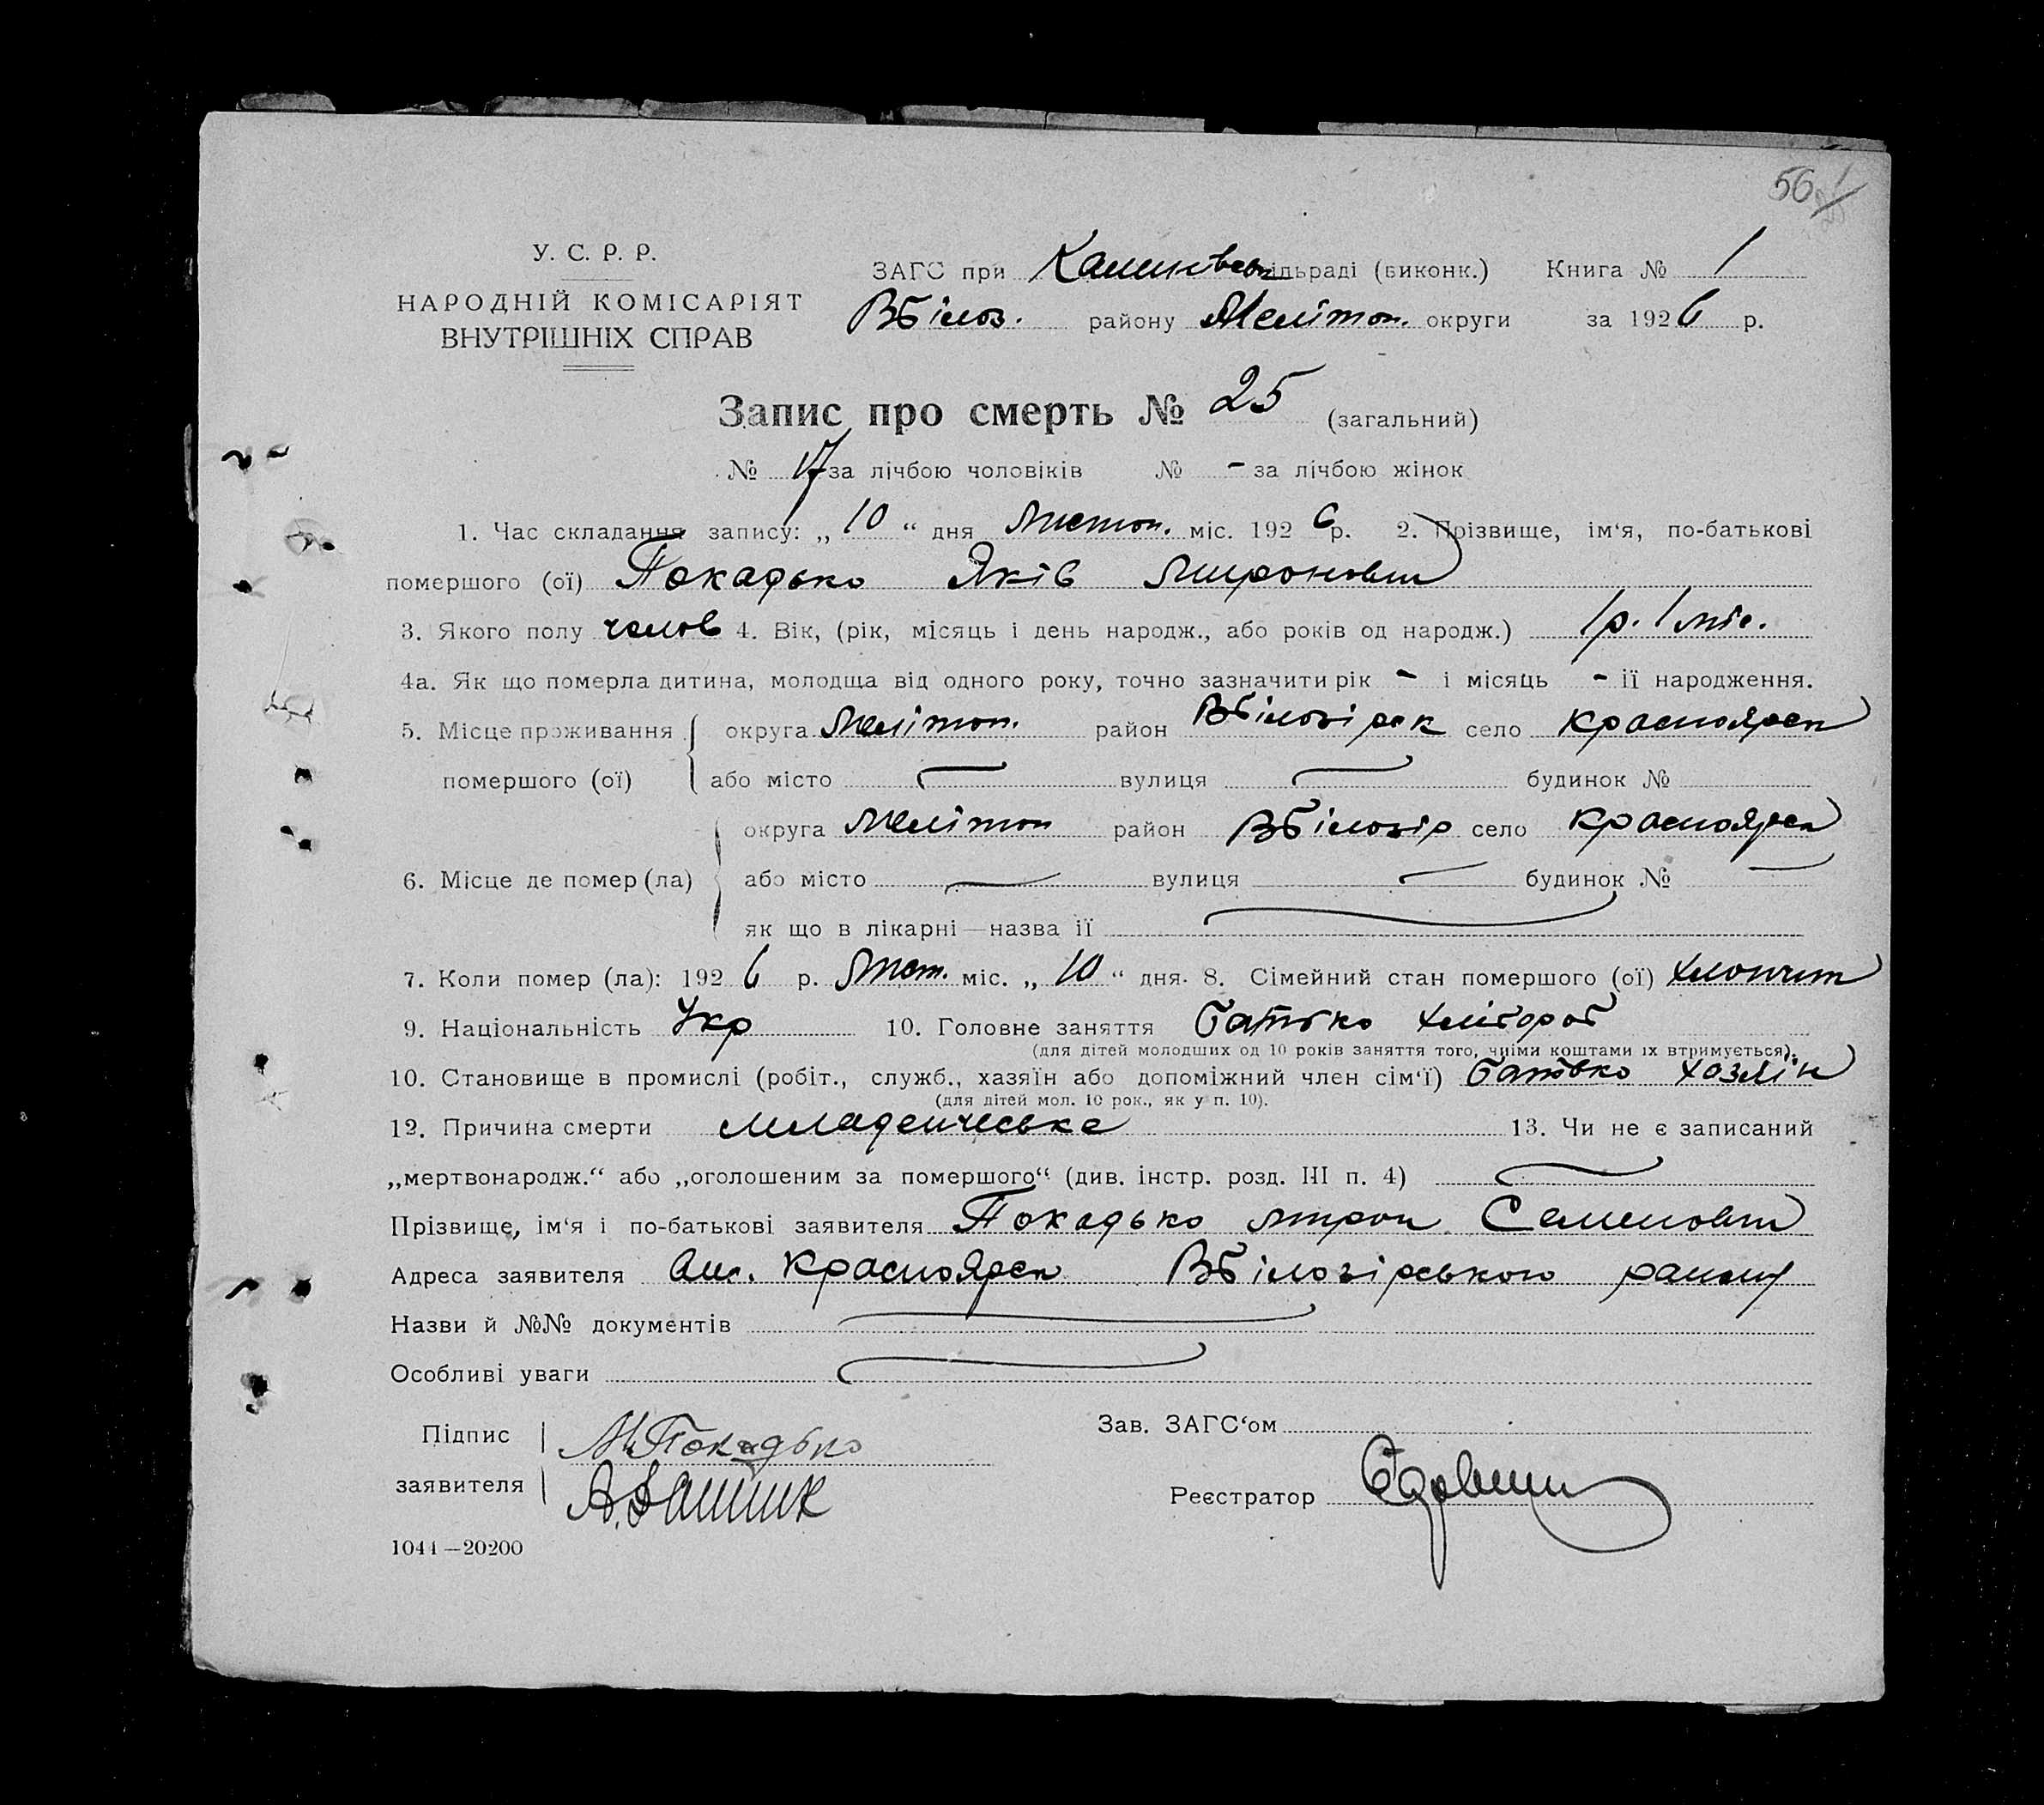 56
У. С. Р. Р.
НАРОДНІЙ КОМІСАРІЯТ
ВНУТРІШНІХ СПРАВ
ЗАГС при сільраді (виконк.) Книга № 1
ВБілоз. району Меліттоп. округи за 1926 р.
Запис про смерть № 25 (загальний)
№ 17 за лічбою чоловіків № - за лічбою жінок
1. Час складання запису: „ 10 “ дня Листоп. міс. 1926 р. 2. Прізвище, ім‘я, по-батькові
помершого (ої) Покадько Яків Миронович
3. Якого полу чолов 4. Вік, (рік, місяць і день народж., або років од народж.) 1 р. 1 міс.
4а. Як що померла дитина, молодша від одного року, точно зазначити рік - і місяць - її народження.
5. Місце проживання округа Мелітоп. район ВБілозірск село Красноярск
помершого (ої) або місто вулиця будинок №
округа Мелітоп район ВБілозір село Красноярск
6. Місце де помер (ла) або місто вулиця будинок №
як що в лікарні—назва її
7. Коли помер (ла): 1926 р. Лист. міс. „ 10 “ дня. 8. Сімейний стан помершого (ої)
9. Національність Укр 10. Головне заняття батько хлібороб
(для дітей молодших од 10 років заняття того, чиїми коштами їх втримується).
10. Становище в промислі (робіт., служб., хазяїн або допоміжний член сім‘ї) батько хазяїн
(для дітей мол. 10 рок., як у п. 10).
12. Причина смерти младенческе 13. Чи не є записаний
„мертвонародж.“ або „оголошеним за помершого“ (див. інстр. розд. III п. 4)
Прізвище, ім‘я і по-батькові заявителя Покадько Мирон Семенович
Адреса заявителя Красноярск ВБілозірського району
Назви й №№ документів
Особливі уваги
Підпис М. Покадько Зав. ЗАГС‘ом
заявителя Реєстратор
1041—20200